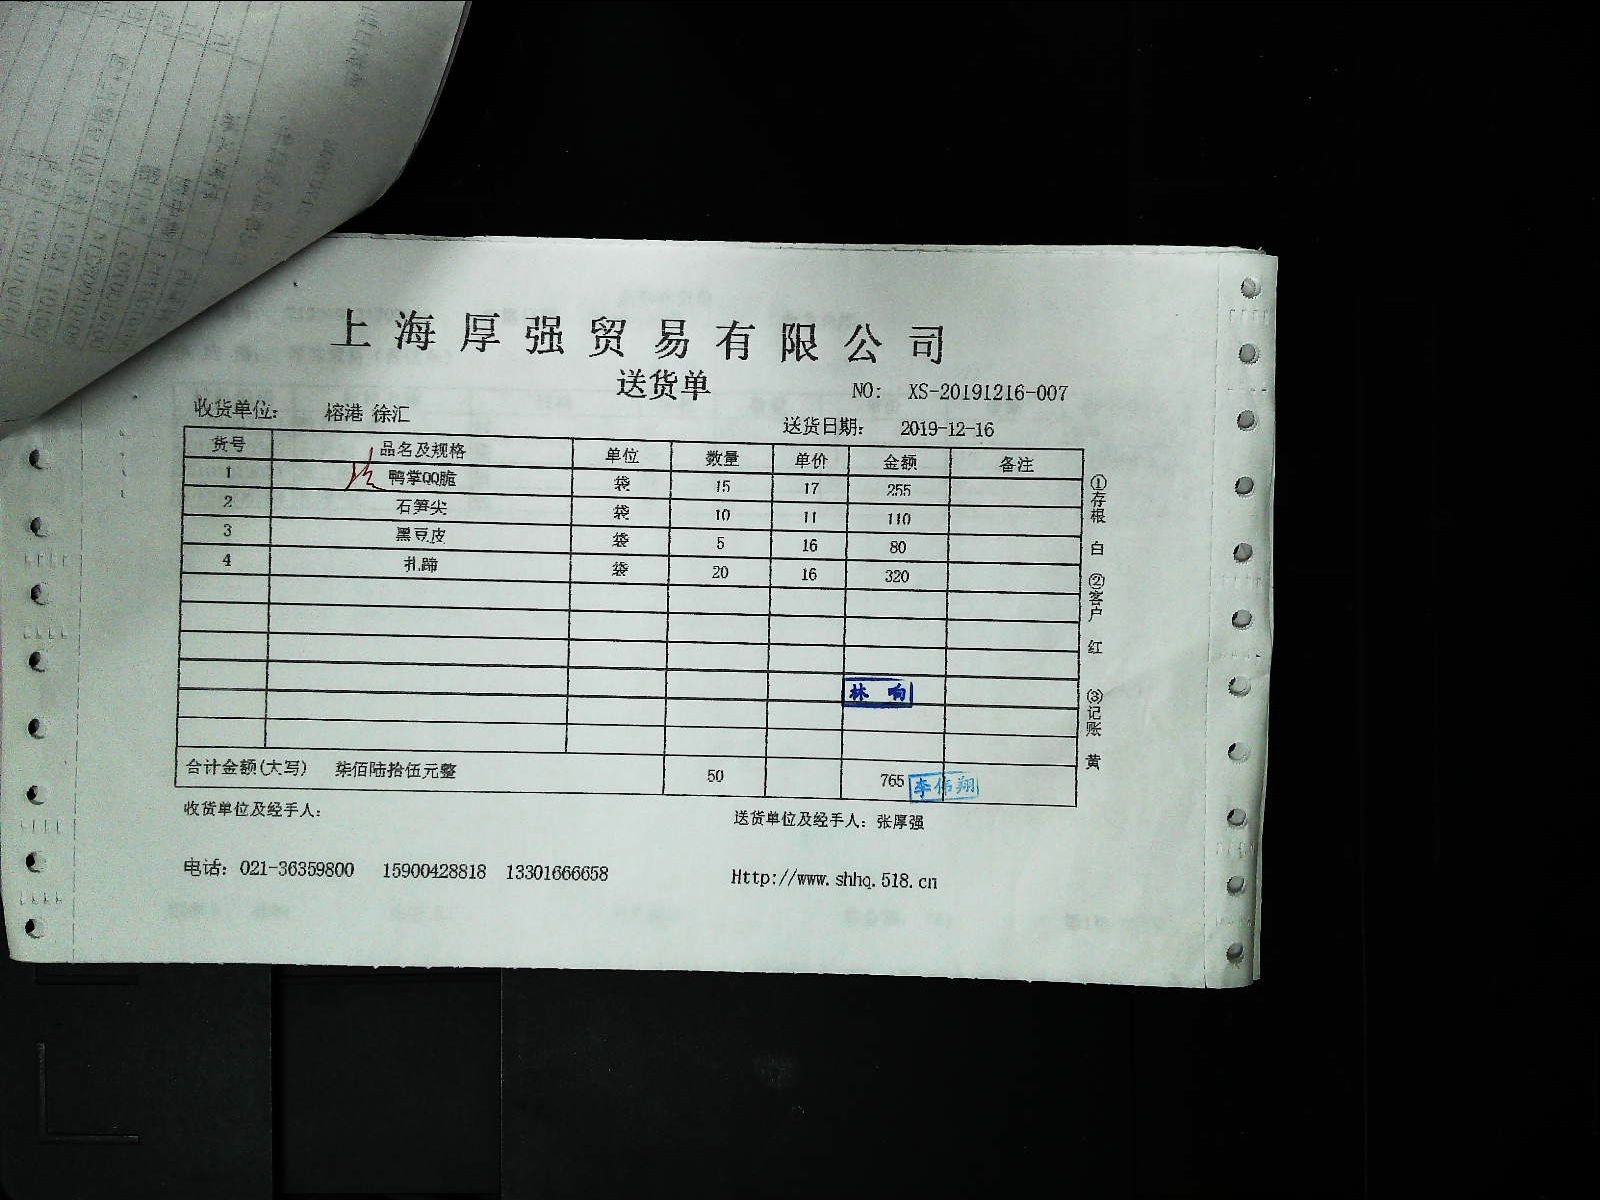 上海厚强贸易有限公司
送货单
NO: XS-20191216-007
收货单位: 榕港 徐汇
送货日期: 2019-12-16
货号 品名及规格 单位 数量 单价 金额 备注
1 鸭掌QQ脆 袋 15 17 255
2 石笋尖 袋 10 11 110
3 黑豆皮 袋 5 16 80
4 扎蹄 袋 20 16 320
林 响
合计金额(大写) 柒佰陆拾伍元整 50 765
李伟翔
①存根 白 ②客户 红 ③记账 黄
收货单位及经手人:
送货单位及经手人: 张厚强
电话: 021-36359800 15900428818 13301666658
Http://www.shhq.518.cn